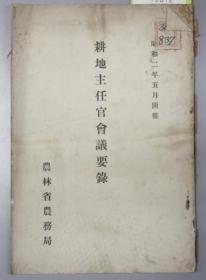 昭和一一年五月開催
耕地主任官會議要錄
農林省農務局
837